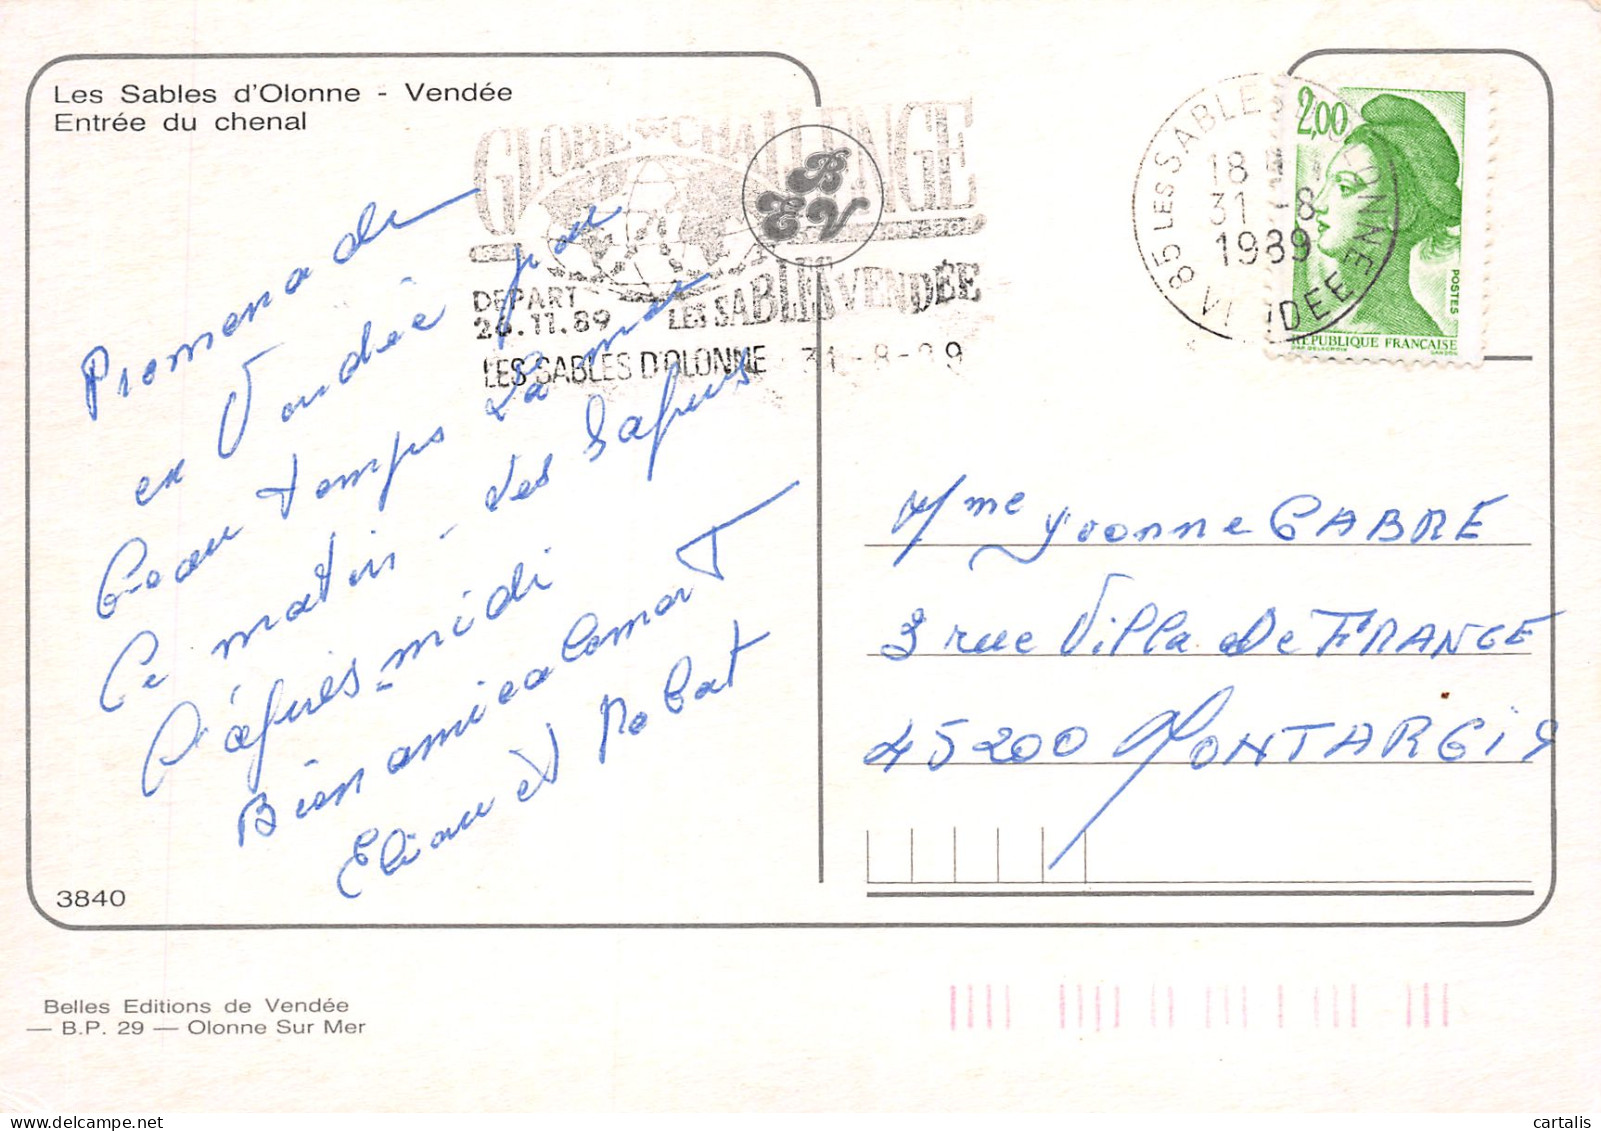 Les Sables d'Olonne - Vendée
Entrée du chenal
GLOBE CHALLENGE
BEV
DEPART
26.11.89
LES SABLES VENDÉE
LES SABLES D'OLONNE 31-8-89
85 LES SABLES D'OLONNE
18
31-8
1989
VENDEE
2,00
POSTES
REPUBLIQUE FRANCAISE
Promenade
en Vendée
beau temps La mer
Ce matin - des
l'après-midi
Bien amicalement
Eliane et Robert
Mme Yvonne CABRE
3 rue Villa de FRANCE
45200 MONTARGIS
3840
Belles Editions de Vendée
— B.P. 29 — Olonne Sur Mer
cartalis